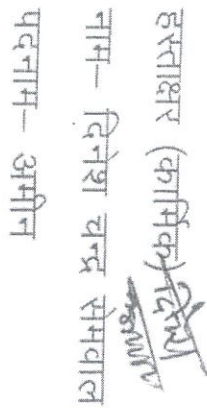 हस्ताक्षर (कार्मिक)
नाम– दिनेश चन्द्र सेमवाल
पदनाम– अमीन